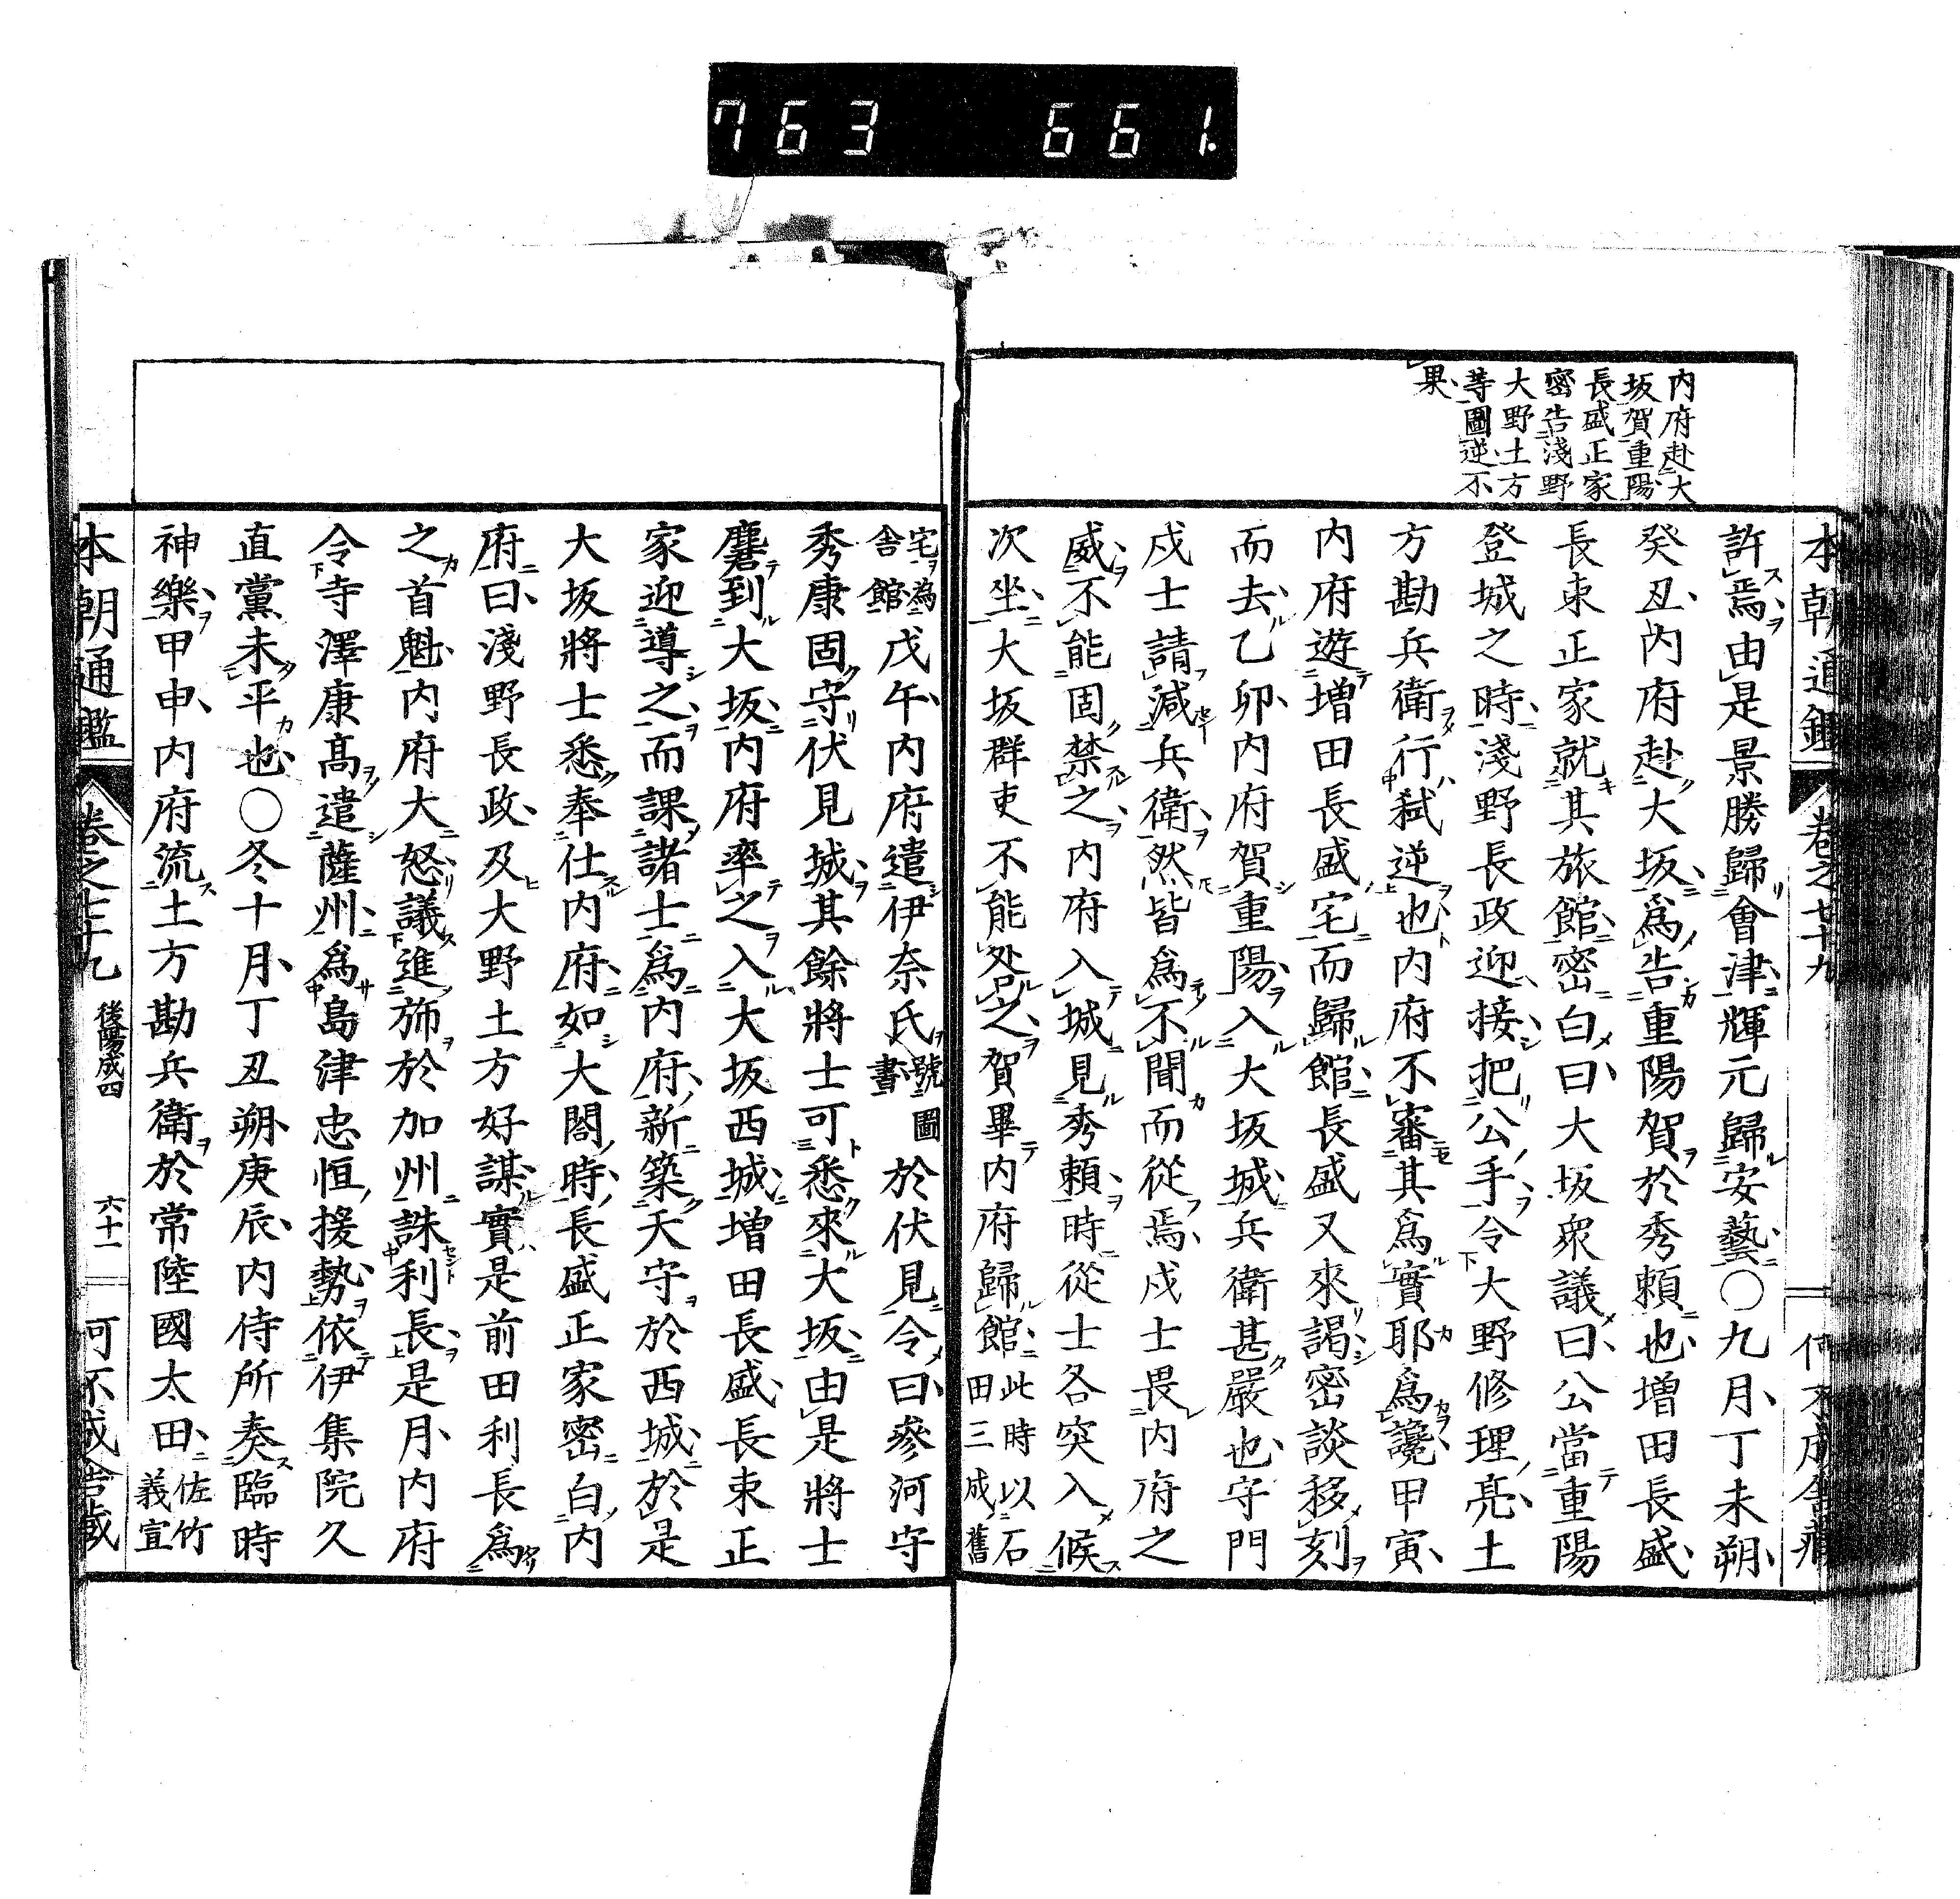 763 661.
內府赴大
坂賀重陽
長盛正家
密告淺野
大野土方
等圖逆不
果
本朝通鑑 卷之七十九
許焉由是景勝歸會津輝元歸安藝〇九月丁未朔
癸丑內府赴大坂爲告重陽賀於秀賴也增田長盛
長束正家就其旅館密白曰大坂衆議曰公當重陽
登城之時淺野長政迎接把公手令大野修理亮土
方勘兵衛行弑逆也內府不審其爲實耶爲讒甲寅
內府遊增田長盛宅而歸館長盛又來謁密談移刻
而去乙卯內府賀重陽入大坂城兵衛甚嚴也守門
戍士請減兵衛然皆爲不聞而從焉戍士畏內府之
威不能固禁之內府入城見秀賴時從士各突入候
次坐大坂群吏不能咎之賀畢內府歸館此時以石田三成舊
宅爲舍館戊午內府遣伊奈氏號圖書於伏見令曰參河守
秀康固守伏見城其餘將士可悉來大坂由是將士
麕到大坂內府率之入大坂西城增田長盛長束正
家迎導之而課諸士爲內府新築天守於西城於是
大坂將士悉奉仕內府如大閤時長盛正家密白內
府曰淺野長政及大野土方好謀實是前田利長爲
之首魁內府大怒議進斾於加州誅利長是月內府
令寺澤康高遣薩州爲島津忠恒援勢依伊集院久
直黨未平也〇冬十月丁丑朔庚辰內侍所奏臨時
神樂甲申內府流土方勘兵衛於常陸國太田佐竹義宣
本朝通鑑 卷之七十九 後陽成四 六十一 可不成舍藏